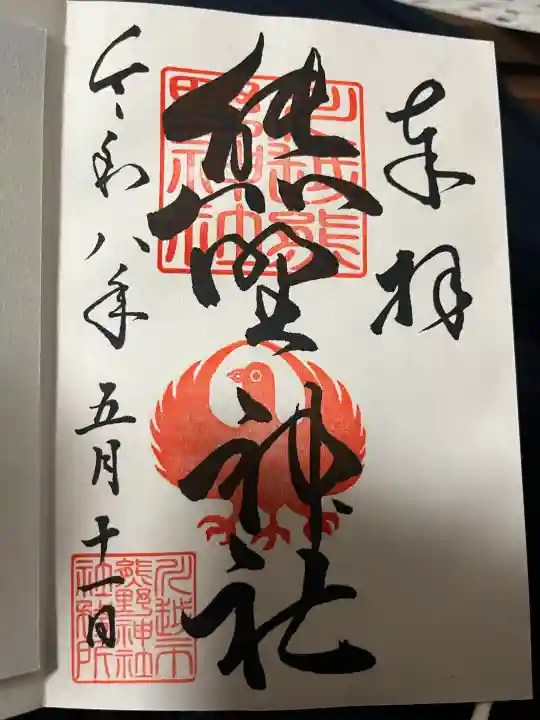 奉拝
熊野神社
川越熊野神社
令和八年 五月十一日
川越市熊野神社社務所